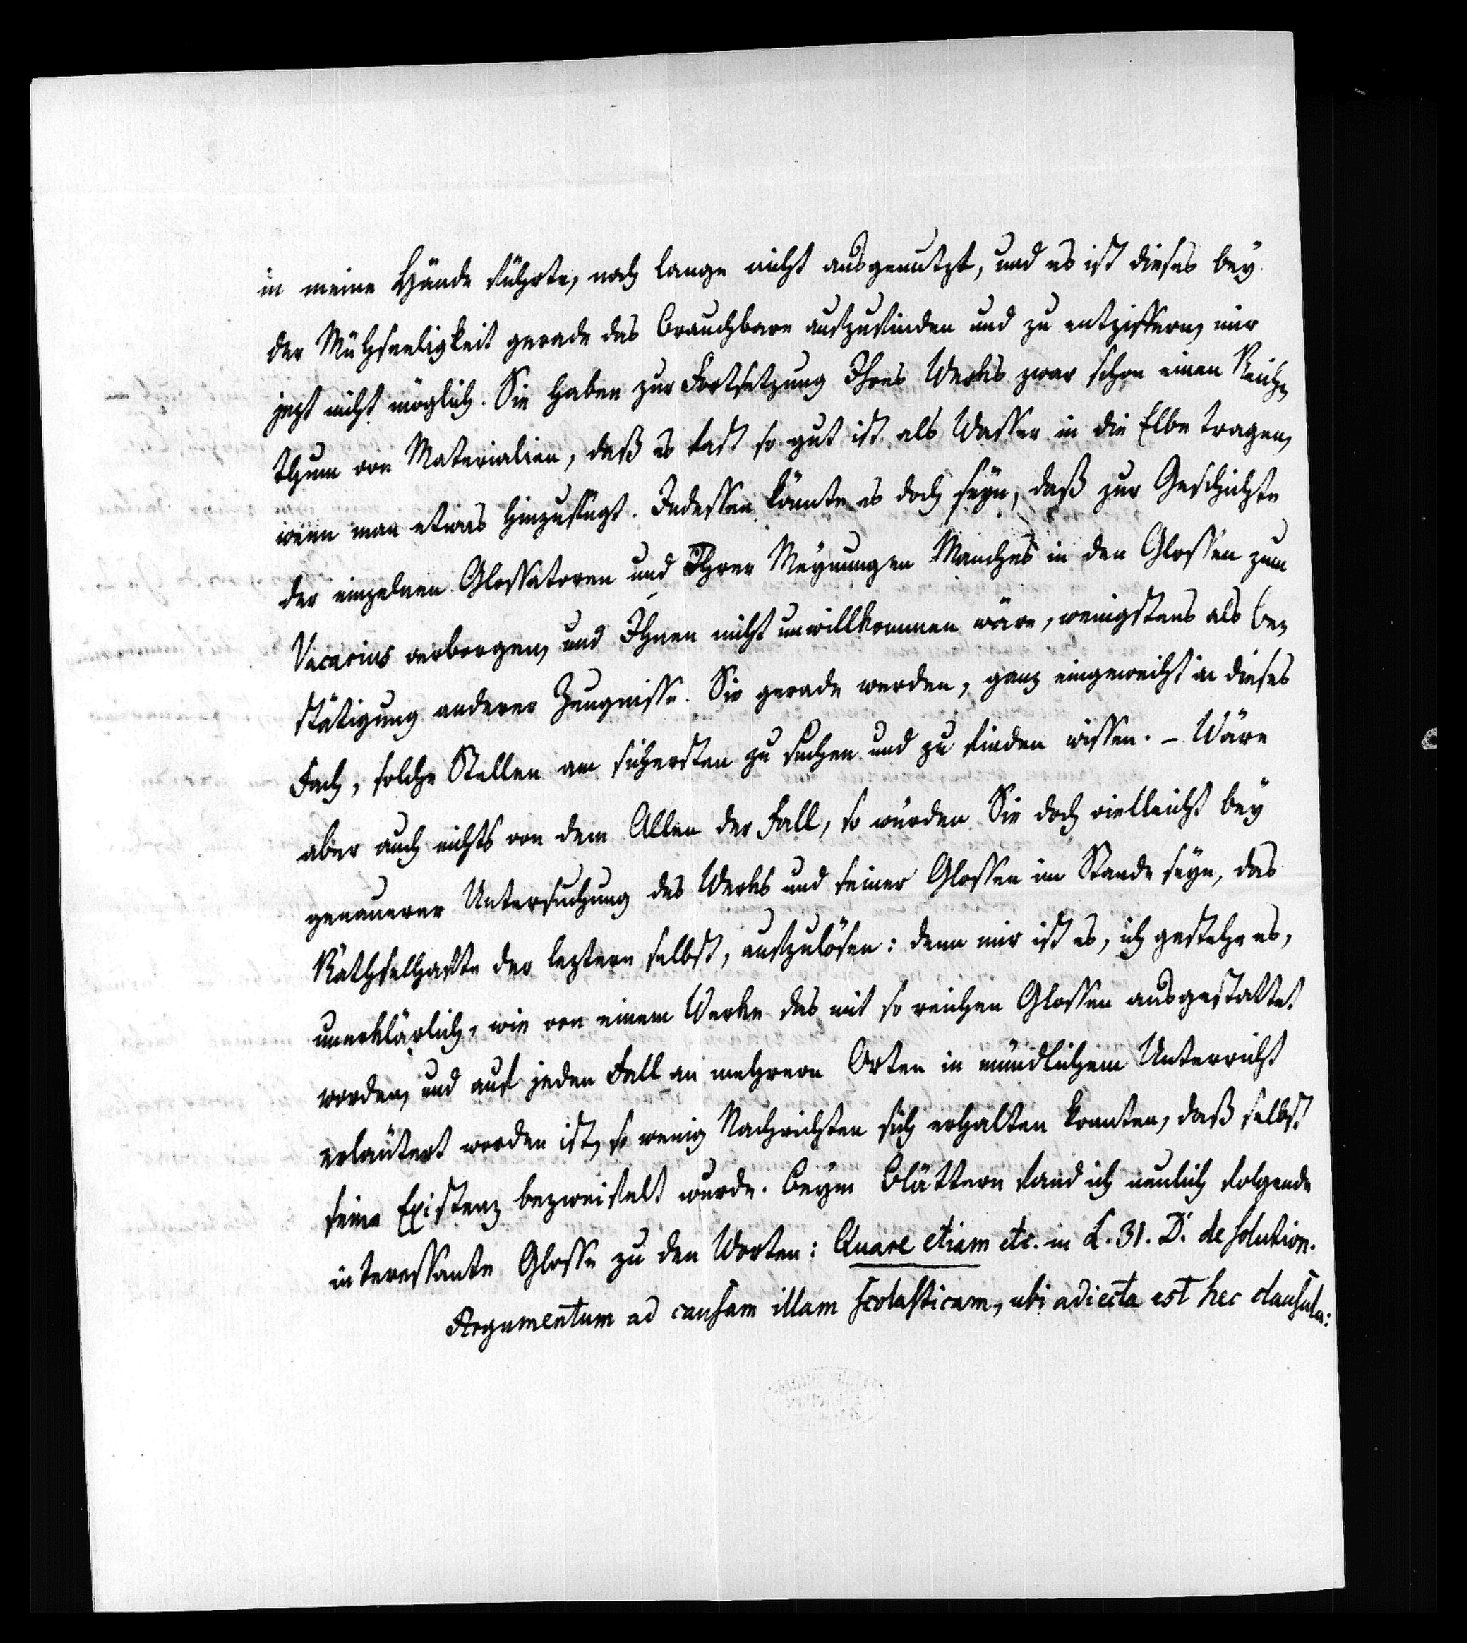 in meine Hände führte, noch lange nicht ausgenutzt, und es ist dieses bey
der Mühseeligkeit gerade das Brauchbare aufzufinden und zu entziffern, mir
jezt nicht möglich. Sie haben zur Fortsetzung Ihres Werks zwar schon einen Reich-
thum von Materialien, daß es fast so gut ist als Wasser in die Elbe tragen,
wenn man etwas hinzufügt. Indessen könnte es doch seyn, daß zur Geschichte
der einzelnen Glossatoren und Ihrer Meynungen Manches in den Glossen zum
Vacarius verborgen, und Ihnen nicht unwillkommen wäre, wenigstens als Be-
stätigung anderer Zeugnisse. Sie gerade werden, ganz eingeweiht in dieses
Fach, solche Stellen am sichersten zu suchen und zu finden wissen. – Wäre
aber auch nichts von dem Allen der Fall, so würden Sie doch vielleicht bey
genauerer Untersuchung des Werks und seiner Glossen im Stande seyn, das
Räthselhafte der leztern selbst, aufzulösen: denn mir ist es, ich gestehe es,
unerklärlich, wie von einem Werke das mit so reichen Glossen ausgestattet
worden, und auf jeden Fall an mehrern Orten in mündlichem Unterricht
erläutert worden ist, so wenig Nachrichten sich erhalten konnten, daß selbst
seine Existenz bezweifelt wurde. Beym Blättern fand ich neulich folgende
interessante Glosse zu den Worten: Quare etiam etc. in L. 31. D. de solution.
Argumentum ad causam illam scolasticam, ubi adiecta est hec clausula: